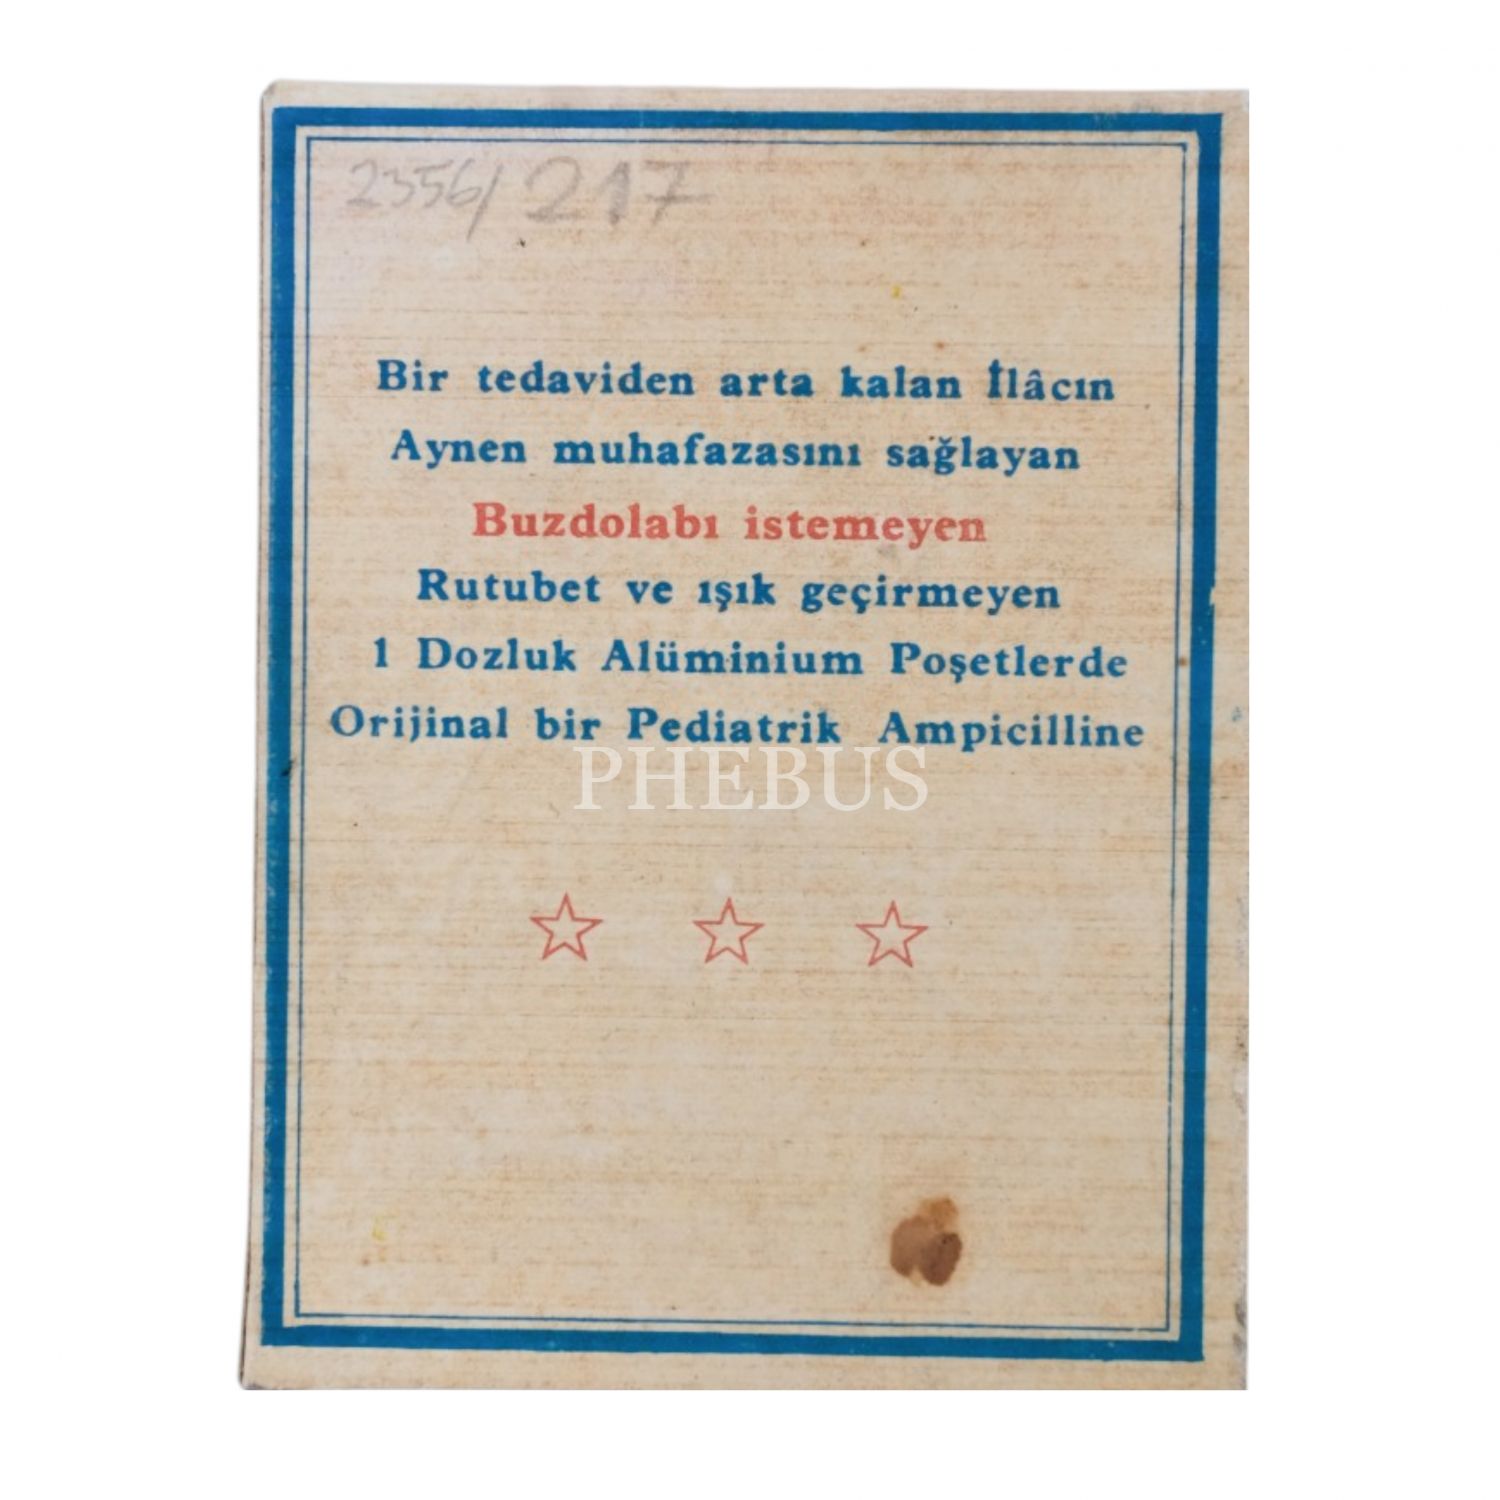 2356/217
Bir tedaviden arta kalan İlâcın
Aynen muhafazasını sağlayan
Buzdolabı istemeyen
Rutubet ve ışık geçirmeyen
1 Dozluk Alüminium Poşetlerde
Orijinal bir Pediatrik Ampicilline
PHEBUS